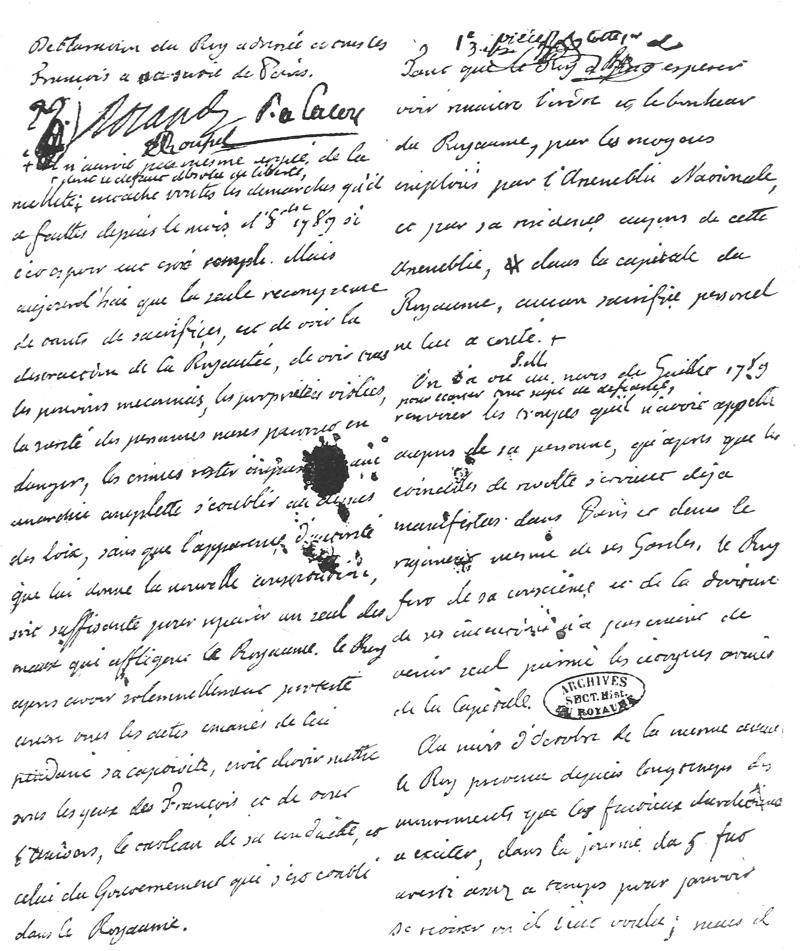 Declaration du Roy adressée a tous les
François a sa sortie de Paris.
Tant que le Roy a pu esperer
voir renaitre l'ordre et le bonheur
du Royaume, par les moyens
employés par l'Assemblée Nationale,
et par sa residence aupres de cette
Assemblée, dans la capitale du
Royaume, aucun sacrifice personel
ne lui a couté. +
On l'a vu au mois de Juillet 1789
pour ecarter tout sujet de defiance,
renvoyer les troupes qu'il n'avoit appellé
aupres de sa personne, qu'apres que les
etincelles de revolte s'etoient deja
manifestées dans Paris et dans le
regiment mesme de ses Gardes. le Roy
fort de sa conscience et de la droiture
de ses intentions n'a pas craint de
venir seul parmi les citoyens armés
de la Capitale.
ARCHIVES
SECT. HIST.
DU ROYAUME
Au mois d'Octobre de la mesme année
le Roy prevenu depuis longtemps des
mouvements que les factieux
a exciter, dans la journée du 5 fut
averti assez a temps pour pouvoir
se retirer ou il eut voulu; mais il
+ il n'auroit pas mesme argué, de la
nullité, dont le defaut absolu de liberté,
entache toutes les demarches qu'il
a faittes depuis le mois d'8bre 1789 si
cet espoir eut esté rempli. Mais
aujourd'hui que la seule recompense
de tants de sacrifices, est de voir la
destruction de la Royauté, de voir tous
les pouvoirs meconnus, les proprietés violées,
la sureté des personnes mises partout en
danger, les crimes rester impunis
anarchie complette s'etablir au dessus
des loix, sans que l'apparence d'autorité
que lui donne la nouvelle constitution,
soit suffisante pour reparer un seul des
maux qui affligent le Royaume. le Roy
apres avoir solemnellement protesté
contre tous les actes emanés de lui
pendant sa captivité, croit devoir mettre
sous les yeux des François et de tout
l'univers, le tableau de sa conduitte, et
celui du Gouvernement qui s'est etabli
dans le Royaume.